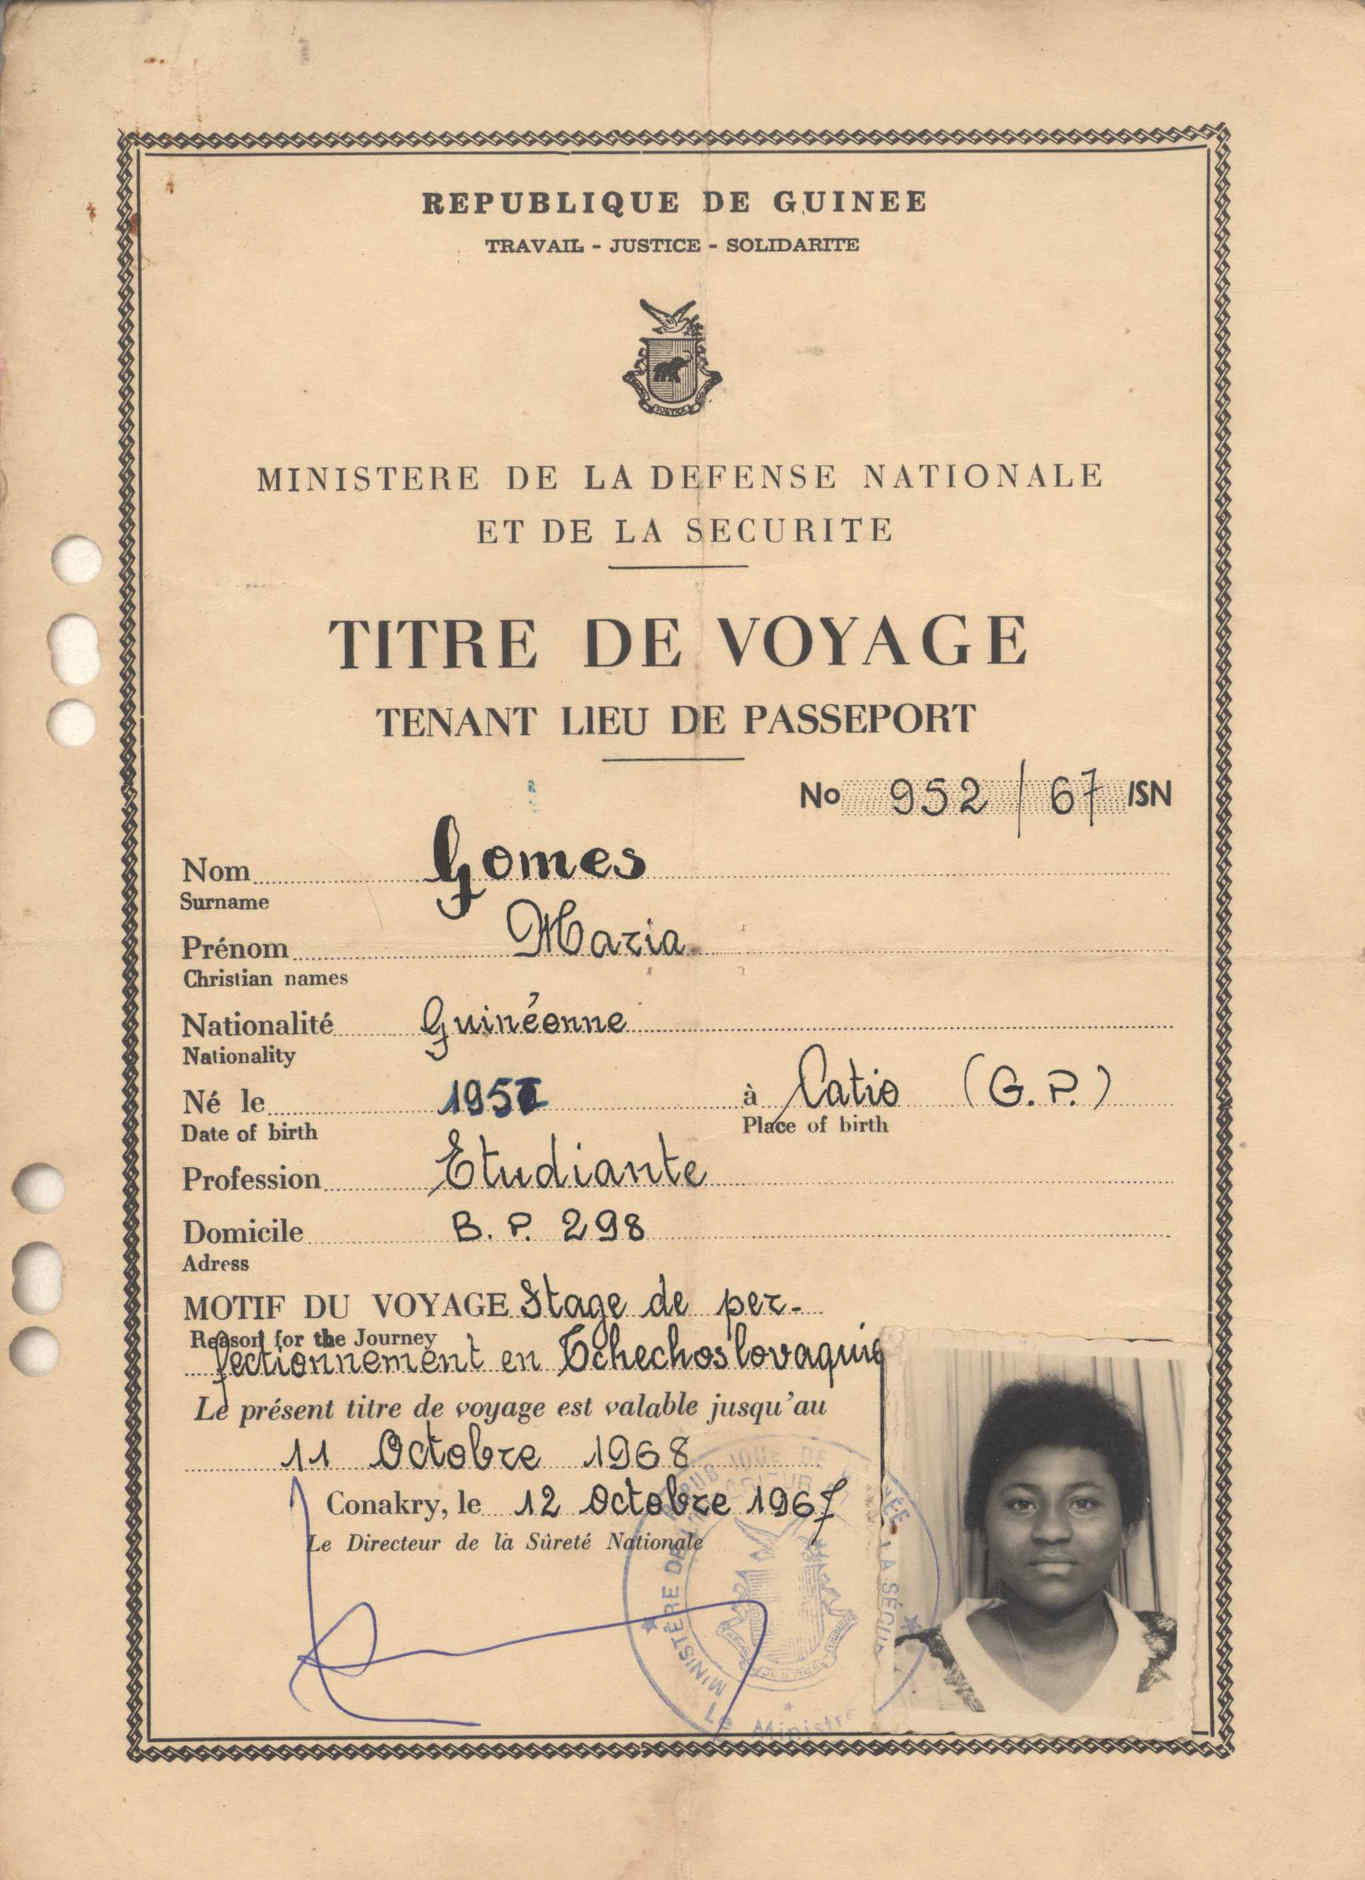 REPUBLIQUE DE GUINEE
TRAVAIL - JUSTICE - SOLIDARITE
MINISTERE DE LA DEFENSE NATIONALE
ET DE LA SECURITE
TITRE DE VOYAGE
TENANT LIEU DE PASSEPORT
No 952 / 67 /SN
Nom Gomes
Surname
Prénom Maria
Christian names
Nationalité Guinéenne
Nationality
Né le 195 à Catio (G.P.)
Date of birth Place of birth
Profession Etudiante
Domicile B.P. 298
Adress
MOTIF DU VOYAGE Stage de per-
Reason for the Journey
fectionnement en Tchechoslovaquie
Le présent titre de voyage est valable jusqu'au
11 Octobre 1968
Conakry, le 12 Octobre 1967
Le Directeur de la Sûreté Nationale
MINISTÈRE DE LA SÉCU
Le Ministre